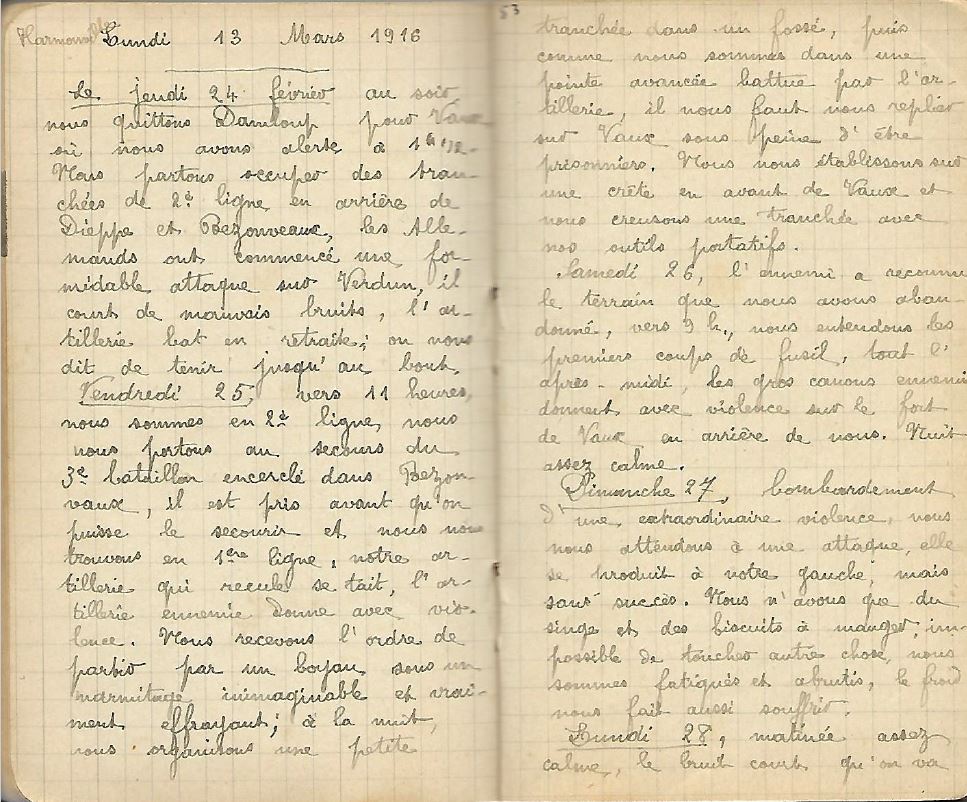 Lundi 13 Mars 1916
Le jeudi 24 février au soir,
nous quittons Damloup pour Vaux
où nous avons alerte à
Nous partons occuper des tran-
chées de 2e ligne en arrière de
Dieppe et Bezonveaux, les Alle-
mands ont commencé une for-
midable attaque sur Verdun, il
court de mauvais bruits, l'ar-
tillerie bat en retraite; on nous
dit de tenir jusqu'au bout.
Vendredi 25, vers 11 heures,
nous sommes en 2e ligne, nous
nous portons au secours du
3e bataillon encerclé dans Bezon-
vaux, il est pris avant qu'on
puisse le secourir et nous nous
trouvons en 1ère ligne, notre ar-
tillerie qui recule se tait, l'ar-
tillerie ennemie donne avec vio-
lence. Nous recevons l'ordre de
partir par un boyau sous un
marmitage inimaginable et vrai-
ment effrayant; à la nuit,
nous organisons une petite
53
tranchée dans un fossé, puis
comme nous sommes dans une
pointe avancée battue par l'ar-
tillerie, il nous faut nous replier
sur Vaux sous peine d'être
prisonniers. Nous nous établissons sur
une crête en avant de Vaux et
nous creusons une tranchée avec
nos outils portatifs.
Samedi 26, l'ennemi a reconnu
le terrain que nous avons aban-
donné, vers 9 h., nous entendons les
premiers coups de fusil, tout l'
après-midi, les gros canons ennemis
donnent avec violence sur le fort
de Vaux en arrière de nous. Nuit
assez calme.
Dimanche 27, bombardement
d'une extraordinaire violence, nous
nous attendons à une attaque, elle
se produit à notre gauche, mais
sans succès. Nous n'avons que du
singe et des biscuits à manger, im-
possible de toucher autre chose, nous
sommes fatigués et abrutis, le froid
nous fait aussi souffrir.
Lundi 28, matinée assez
calme, le bruit court qu'on va